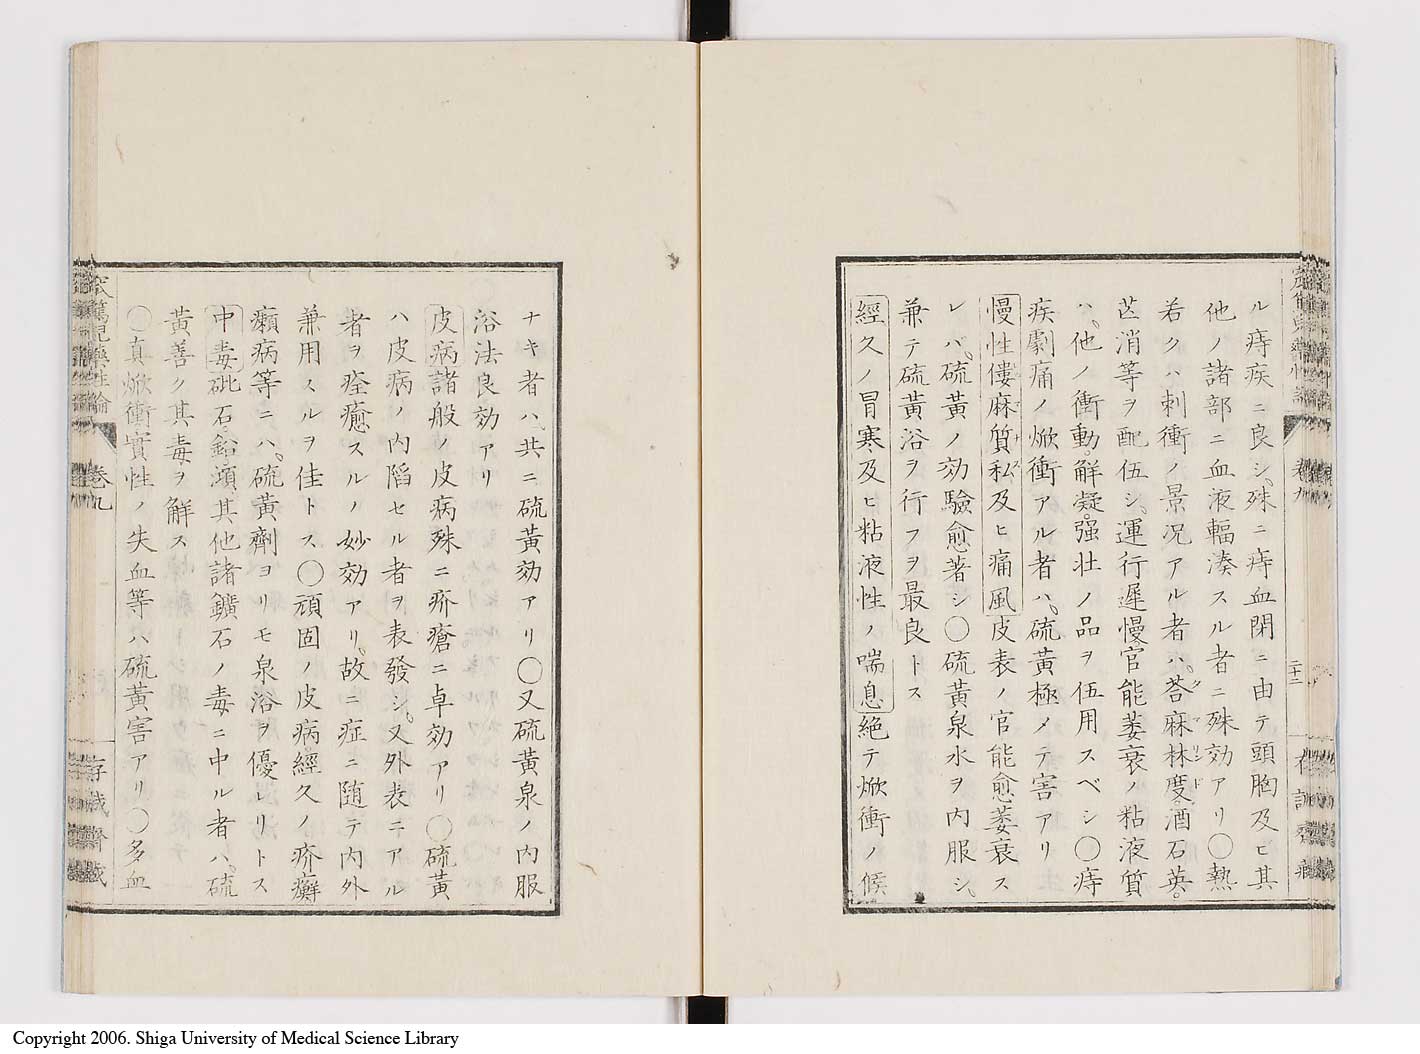 ル痔疾ニ良シ殊ニ痔血閉ニ由テ頭胸及ビ其
他ノ諸部ニ血液輻湊スル者ニ殊効アリ〇熱
若クハ刺衝ノ景況アル者ハ荅麻林度酒石英
芒消等ヲ配伍シ運行遲慢官能萎衰ノ粘液質
ハ他ノ衝動解凝强壮ノ品ヲ伍用スベシ〇痔
疾劇痛ノ焮衝アル者ハ硫黄極メテ害アリ
慢性僂麻質私及ヒ痛風皮表ノ官能愈萎衰ス
レバ硫黄ノ効驗愈著シ〇硫黄泉水ヲ内服シ
兼テ硫黄浴ヲ行フヲ最良トス
經久ノ冒寒及ヒ粘液性ノ喘息絶テ焮衝ノ候
二十二
ナキ者ハ共ニ硫黄効アリ〇又硫黄泉ノ内服
浴法良効アリ
皮病諸般ノ皮病殊ニ疥瘡ニ卓効アリ〇硫黄
ハ皮病ノ内陷セル者ヲ表發シ又外表ニアル
者ヲ痊癒スルノ妙効アリ故ニ症ニ随テ内外
兼用スルヲ佳トス〇頑固ノ皮病經久ノ疥癬
癩病等ニハ硫黄劑ヨリモ泉浴ヲ優レリトス
中毒砒石鉛澒其他諸鑛石ノ毒ニ中ル者ハ硫
黄善ク其毒ヲ解ス
〇真焮衝實性ノ失血等ハ硫黄害アリ〇多血
窊篤児藥性論
卷九
存誠齋藏
Copyright 2006. Shiga University of Medical Science Library